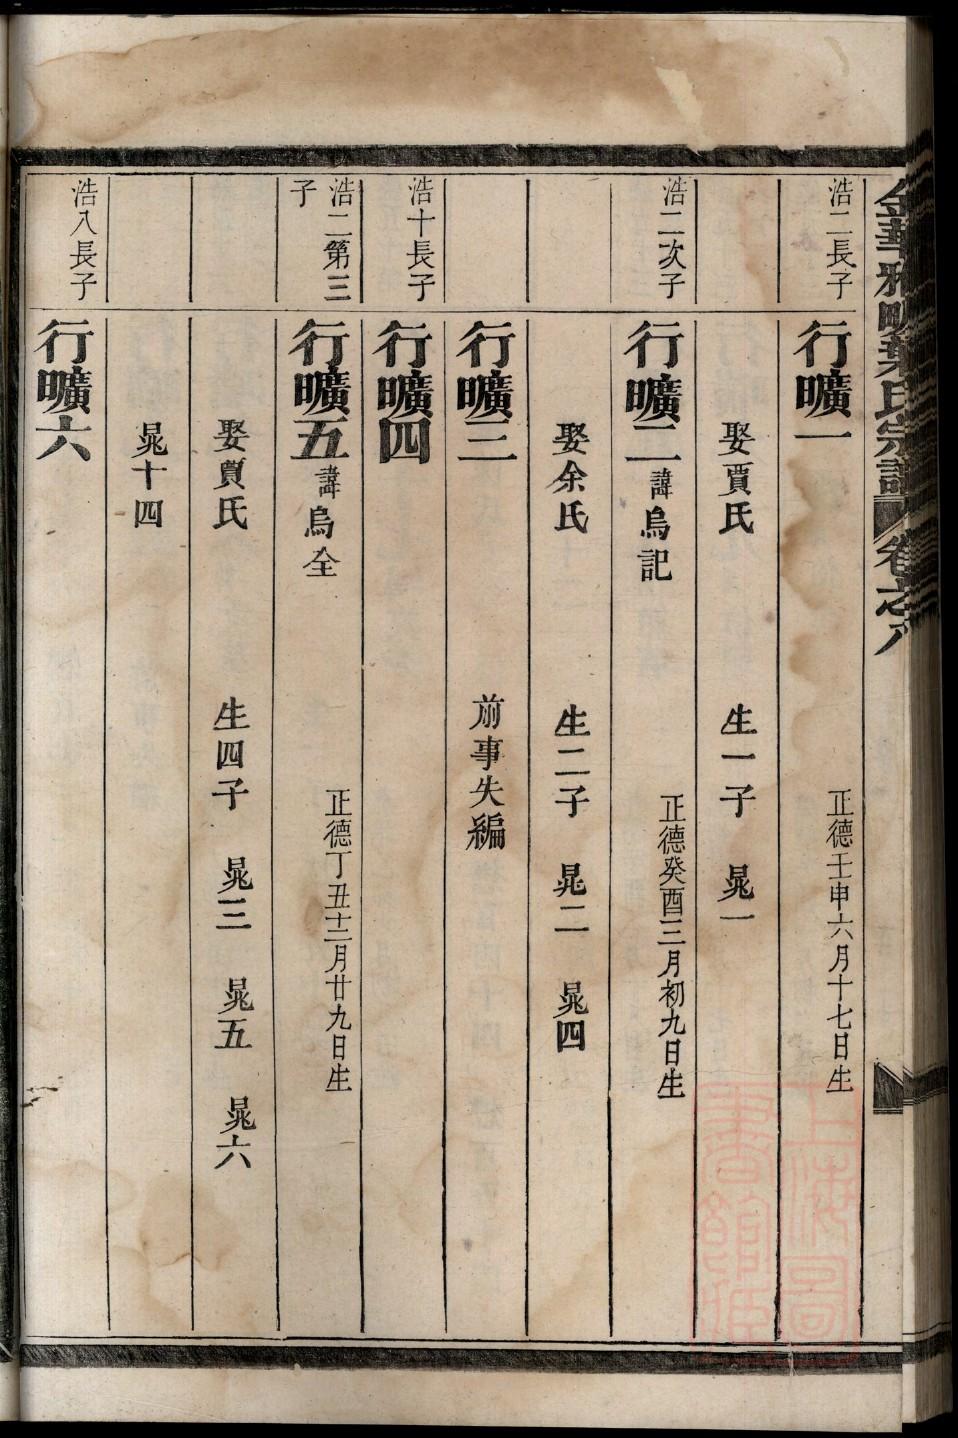 金華雅畈葉氏宗譜 卷之八
浩二長子
行曠一
正德壬申六月十七日生
娶賈氏 生一子 晁一
浩二次子
行曠二 諱烏記
正德癸酉三月初九日生
娶余氏 生二子 晁二 晁四
行曠三
前事失編
浩十長子
行曠四
浩二第三子
行曠五 諱烏全
正德丁丑十二月廿九日生
娶賈氏 生四子 晁三 晁五 晁六
晁十四
浩八長子
行曠六
上海圖書館藏